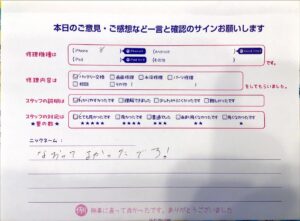 本日のご意見・ご感想など一言と確認のサインお願いします
修理機種は
iPhone 8
Android
iPad
その他
です。
修理内容は
バッテリー交換 画面修理 水没修理 パーツ修理
相談 その他
をしてもらいました。
スタッフの説明は
わかりやすかったです 理解できました 少しわかりにくかったです 難しかったです
スタッフの対応は
★星の数★
とても良かったです 良かったです 普通でした あまり良くなかったです 良くなかったです
★★★★★ ★★★★ ★★★ ★★ ★
ニックネーム：
なおって よかったです！
無事に直って良かったです。ありがとうございました